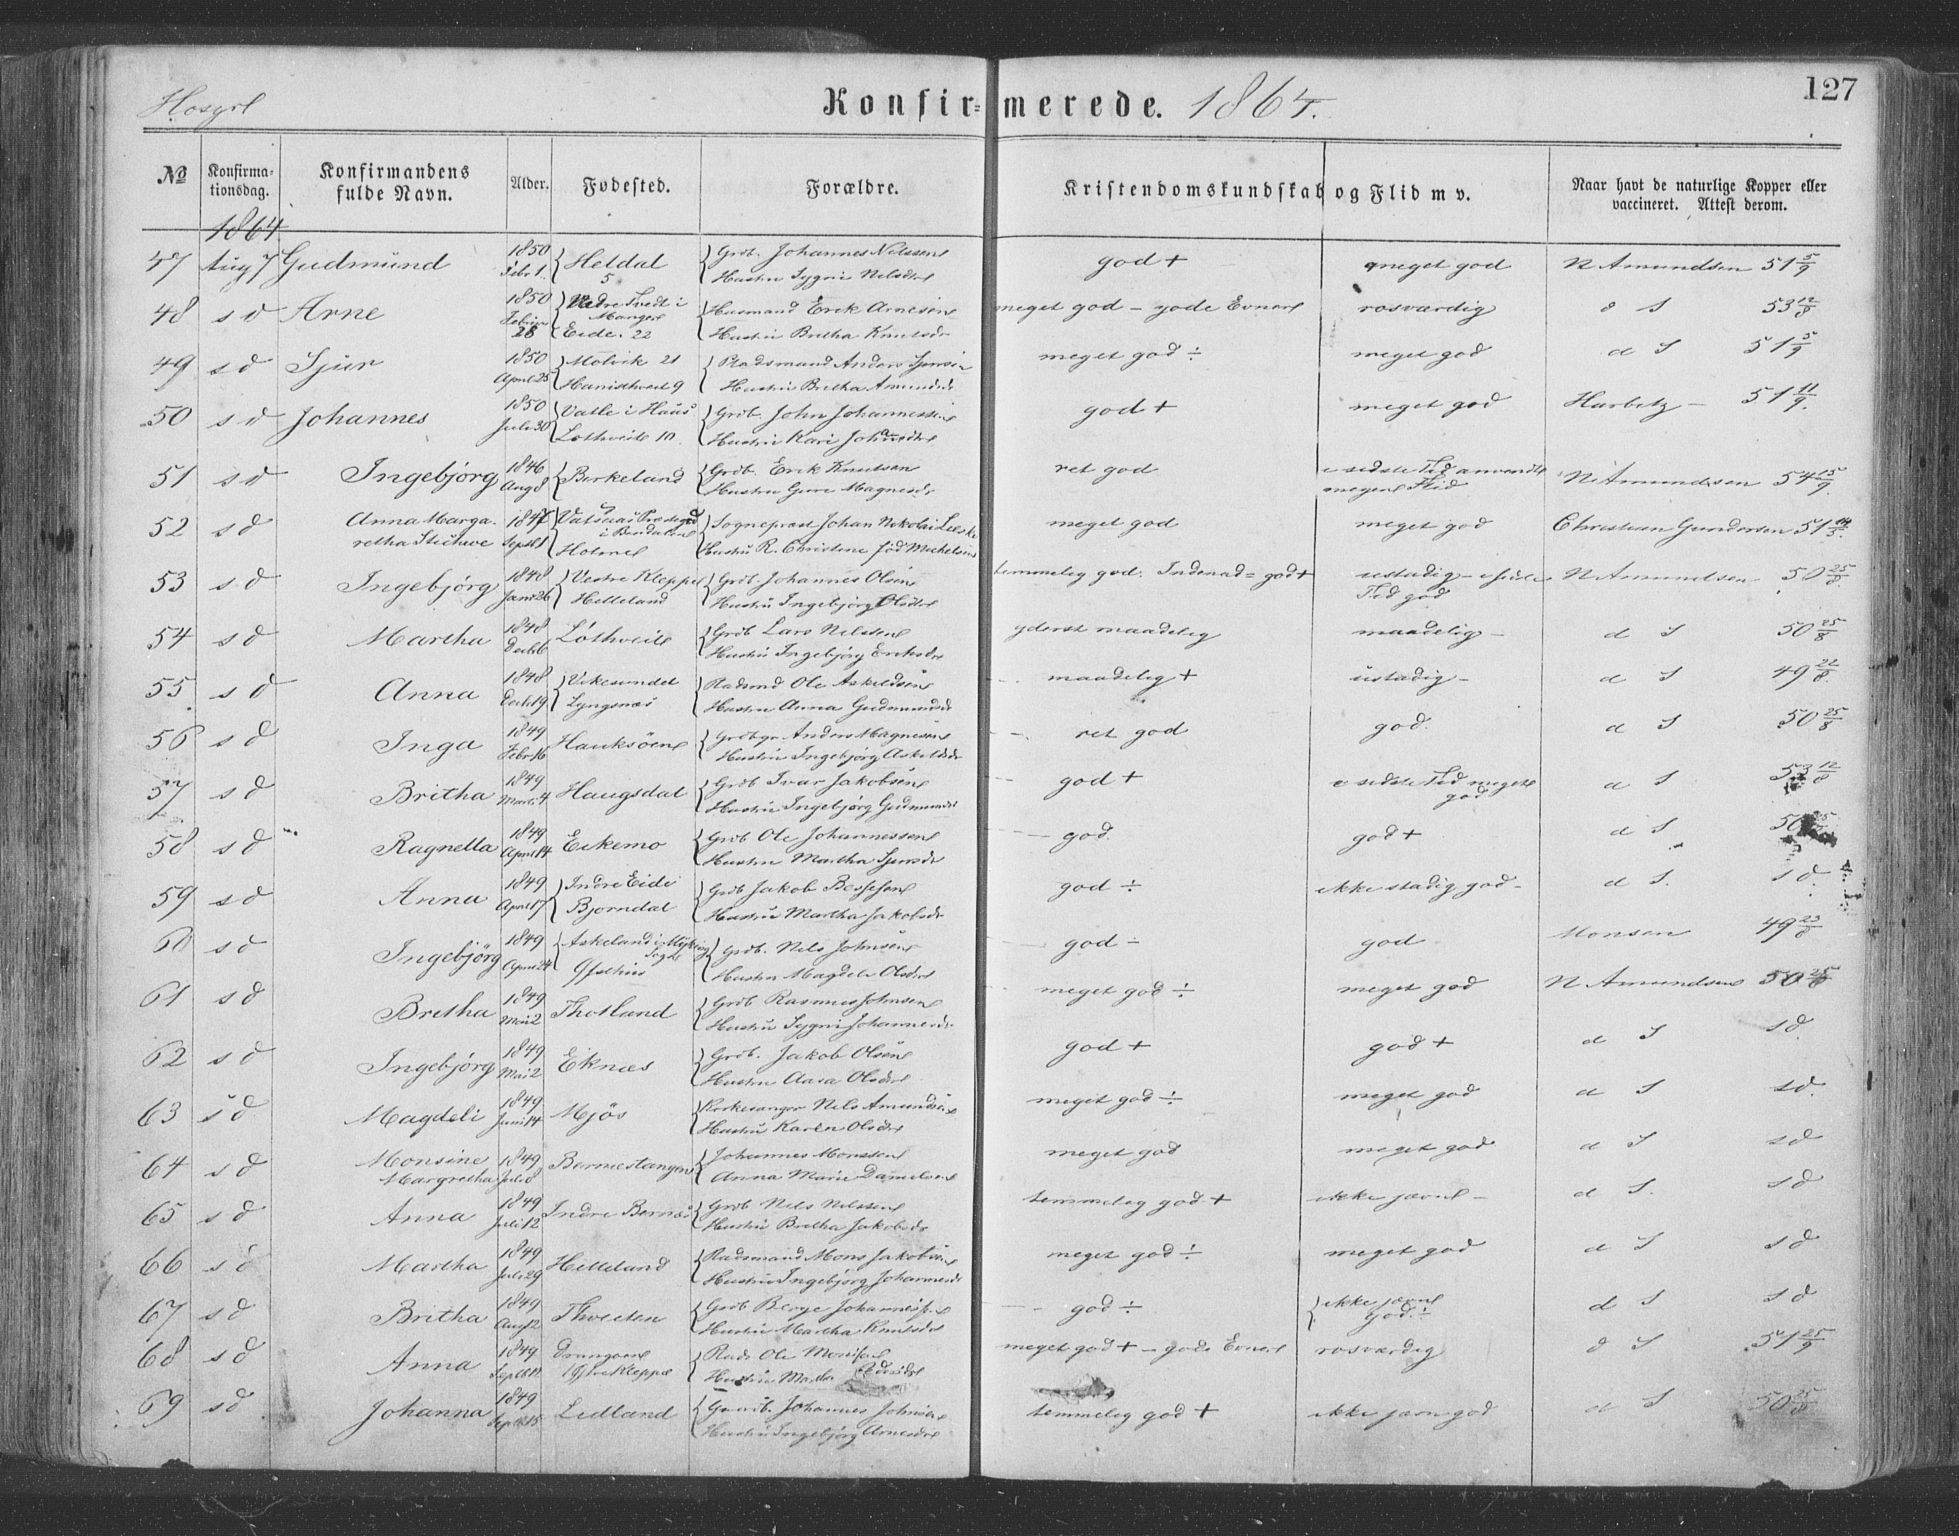 127
Konfirmerede. 1864.
№
Konfirmationsdag.
Konfirmandens fulde Navn.
Alder.
Fødested.
Forældre.
Kristendomskundskab og Flid m v.
Naar havt de naturlige Kopper eller vaccineret. Attest derom.
1864
47 Aug 7 Gudmund 1850 Febr 1. Heldal 5 Grdb. Johannes Nilssen Hustru Sygni Nilsdtr god + meget god N Amundsen 51 5/9
48 s d Arne 1850 28 Nedre Tvedt i Manger Eide. 22 Husmand Erik Arnesen Hustru Britha Knutsdr meget god – gode Evner rosværdig d S 53 12/8
49 s d Sjur 1850 April 25 Molvik 21 9 Pladsmand Anders Hustru Britha meget god ÷ meget god d S 51 5/9
50 s d Johannes 1850 Juli 30 Vatle i Haus Løthveit 10. Grdb. John Johannessen Hustru Kari god + meget god 51 11/9.
51 s d Ingebjørg 1846 Aug 8 Birkeland Grdb. Erik Knutsen Hustru Guri Magnesdr ret god i sidste Tid anvendt megen Flid N Amundsen 54 15/9.
52 s d Anna Margaretha 1847 Septb 1 Holme Sogneprest Johan Nikolai Hustru R. Christine fød Michelsen meget god meget god Christian Gundersen 51 14/5.
53 s d Ingebjørg 1848 Janr 26 Vestre Kleppe Helleland Grdb. Johannes Olsen Hustru Ingebjørg Olsdtr temmelig god. Indenad = god + ustadig – i sidste Tid god N Amundsen 50 25/8.
54 s d Martha 1848 Decb 6 Løthveit Grdb Lars Nilssen Hustru Ingebjørg Eriksdr yderst maadelig maadelig – d S 50 25/8
55 s d Anna 1848 Decb 19 Vikesundet Lyngnæs Pladsmd Ole Askildsen Hustru Anna Gudmundsdr maadelig + ustadig – d S 49 22/8.
56 s d Inga 1849 Febr 16 Hauksøen Grdbr Anders Magnesen Hustru Ingebjørg Askildsdr ret god god. d S 50 25/8
57 s d Britha 1849 Marts 4 Haugsdal Grdb Ivar Jakobsen Hustru Ingebjørg Gudmundsdr god + i sidste Tid meget god d S 53 12/8
58 s d Ragnella 1849 April 14 Eikemo Grdb Ole Johannessen Hustru Martha Sjursdr god god + d S 50
59 s d Anna 1849 April 17 Indre Eide Bjørndal Grdb Jakob Hustru Martha Jakobsdr god ÷ ikke stadig god – d S. s d
60 s d Ingebjörg 1849 April 24 Askeland i Grdb. Nils Johnsen Hustru Magdele Olsdtr god – god Monsen 49 23/8
61 s d Britha 1849 Mai 2 Thotland Grdb Rasmus Johnsen Hustru Sygni Johannesdr. meget god ÷ meget god N Amundsen 50 25/8
62 s d Ingebjørg 1849 Mai 2 Eknæs Grdb. Jakob Olsen Hustru Aasa Olsdtr god + god + d S s d.
63 s d Magdeli 1849 Juni 14 Mjös Kirkesanger Nils Amundsen Hustru Karen Olsdtr meget god ÷ meget god d S s d.
64 s d Monsine Margretha 1849 Juli 8 Bernestangen Johannes Monssen Anna Marie Danielsen meget god meget god d S s d
65 s d Anna 1849 Juli 12 Indre Bernæs Grdb Nils Nilssen Hustru Britha Jakobsdr temmelig god + ikke jævn – d S. s d
66 s d Martha 1849 Juli 29 Helleland Pladsmand Mons Jakobsen Hustru Ingebjørg Johannesdr meget god ÷ meget god d S s d
67 s d Britha 1849 Aug 12 Thveiten Grdb Berge Johannessen Hustru Martha Knutsdr god ÷ ikke jævn god. ÷ d S s d
68 s d Anna 1849 Kleppe Plads Ole Monsen Hustru Martha meget god + – gode Evner rosværdig d S 51 25/9
69 s d Johanna 1849 Septb 15 Lidland Johannes Johnsen Hustru Ingebjørg Arnesdtr temmelig god + ikke jævn god d S 50 25/8